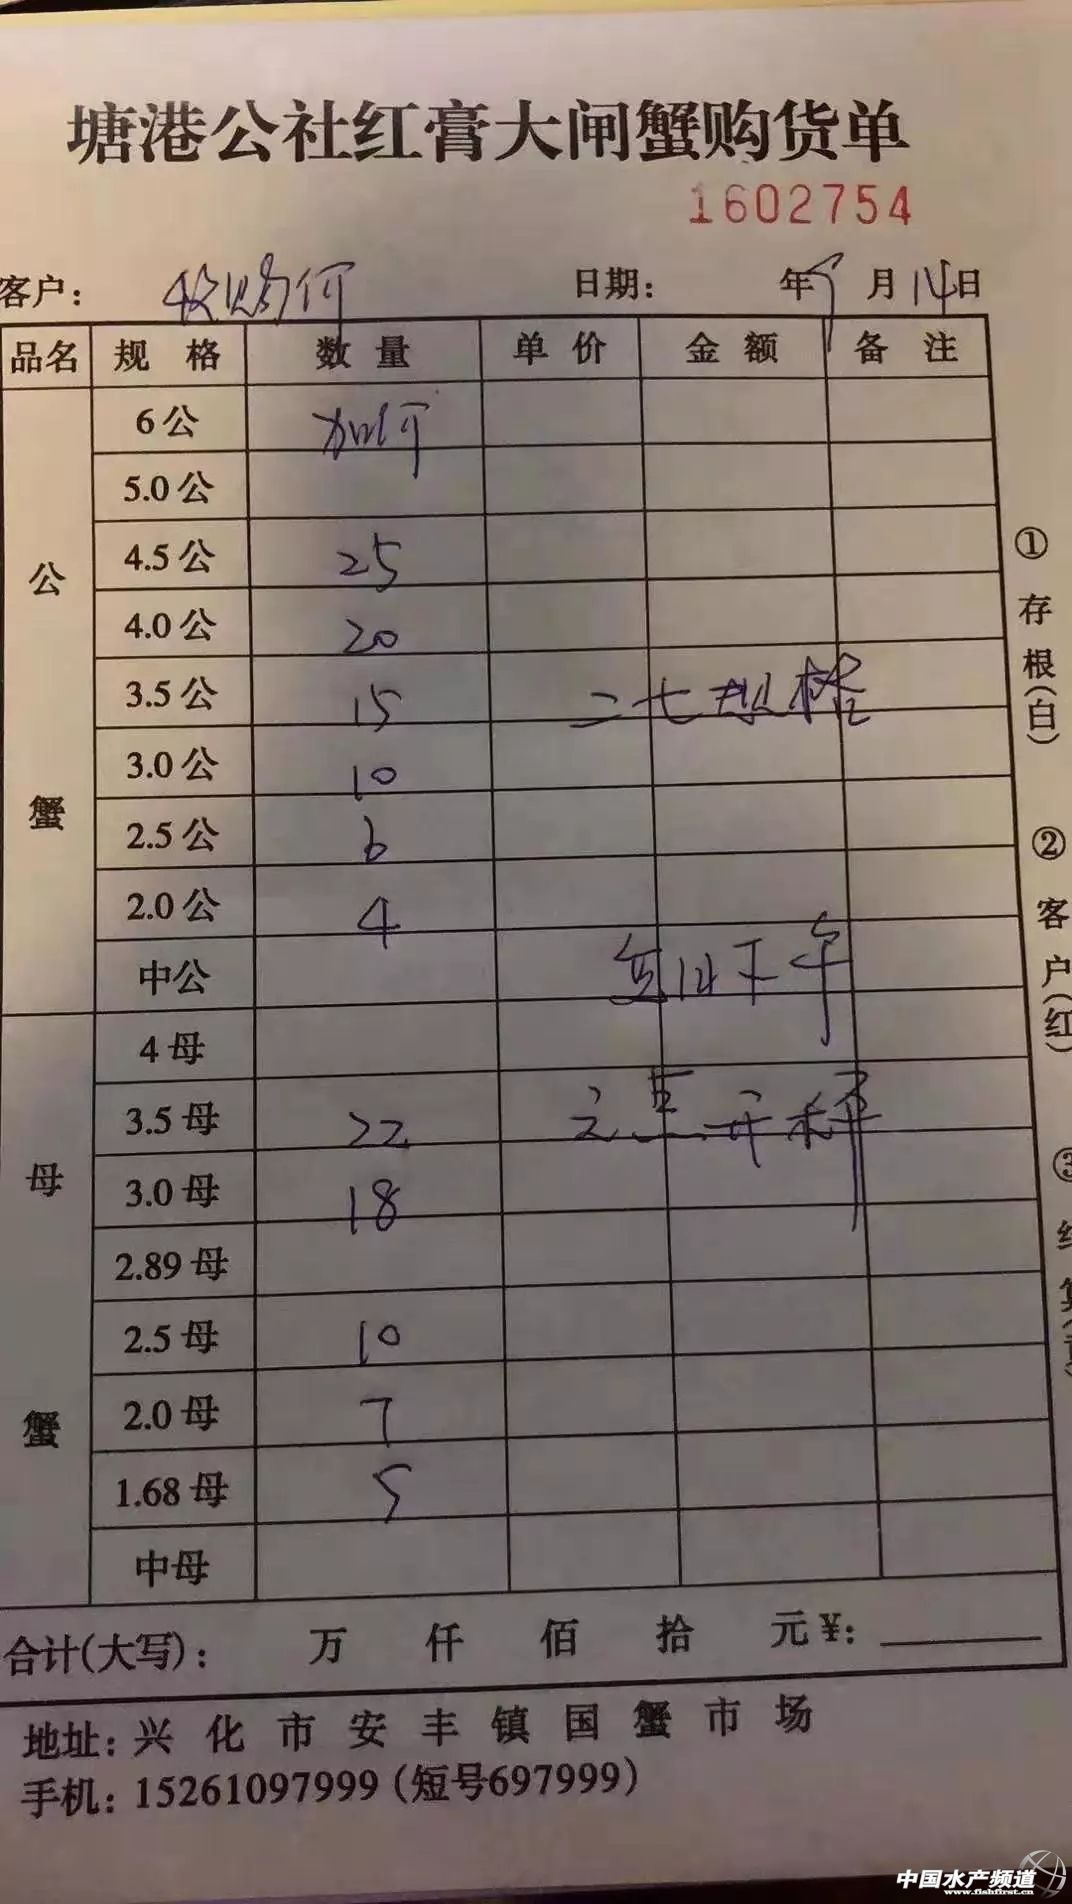 塘港公社红膏大闸蟹购货单
1602754
客户： 收购价 日期： 年 9 月 14 日
品名 规 格 数 量 单 价 金 额 备 注
公蟹
6公
5.0公
4.5公 25
4.0公 20
3.5公 15 二七规格
3.0公 10
2.5公 6
2.0公 4
中公 14下午
母蟹
4母
3.5母 22 开秤
3.0母 18
2.89母
2.5母 10
2.0母 7
1.68母 5
中母
合计(大写)： 万 仟 佰 拾 元 ¥:
地址：兴化市安丰镇国蟹市场
手机：15261097999（短号697999）
①存根(白)
②客户(红)
③
中国水产频道
www.fishfirst.cn